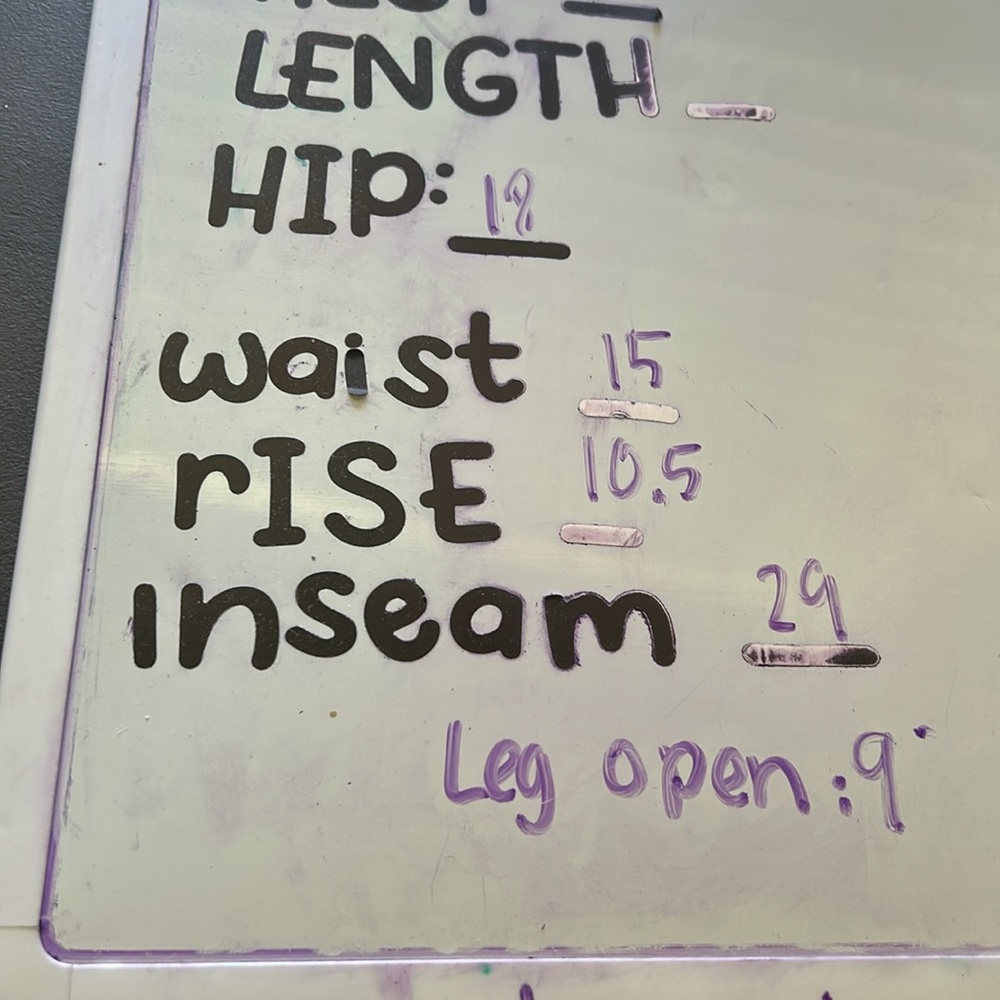 LENGTH
HIP: 18
waist 15
rISE 10.5
Inseam 29
Leg open: 9